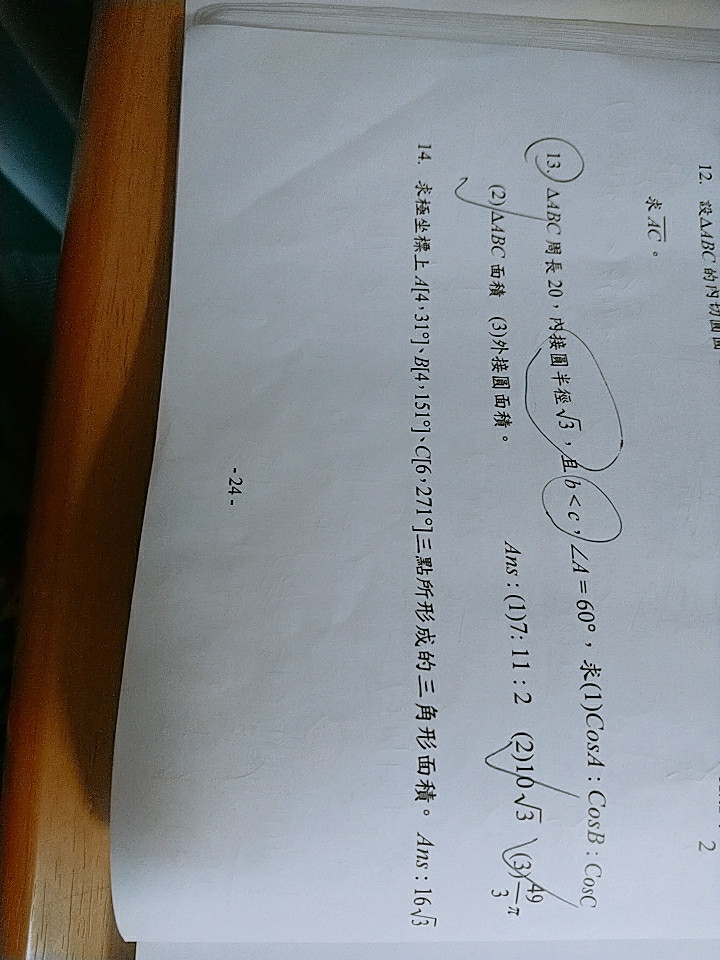 12. 設ΔABC 的內切圓
2
求 AC。
13. ΔABC 周長 20,內接圓半徑 √3,且 b < c,∠A = 60°,求(1)CosA : CosB : CosC
(2)ΔABC 面積 (3)外接圓面積。
Ans : (1)7 : 11 : 2 (2)10√3 (3)49/3 π
14. 求極坐標上 A[4,31°]、B[4,151°]、C[6,271°]三點所形成的三角形面積。 Ans : 16√3
- 24 -